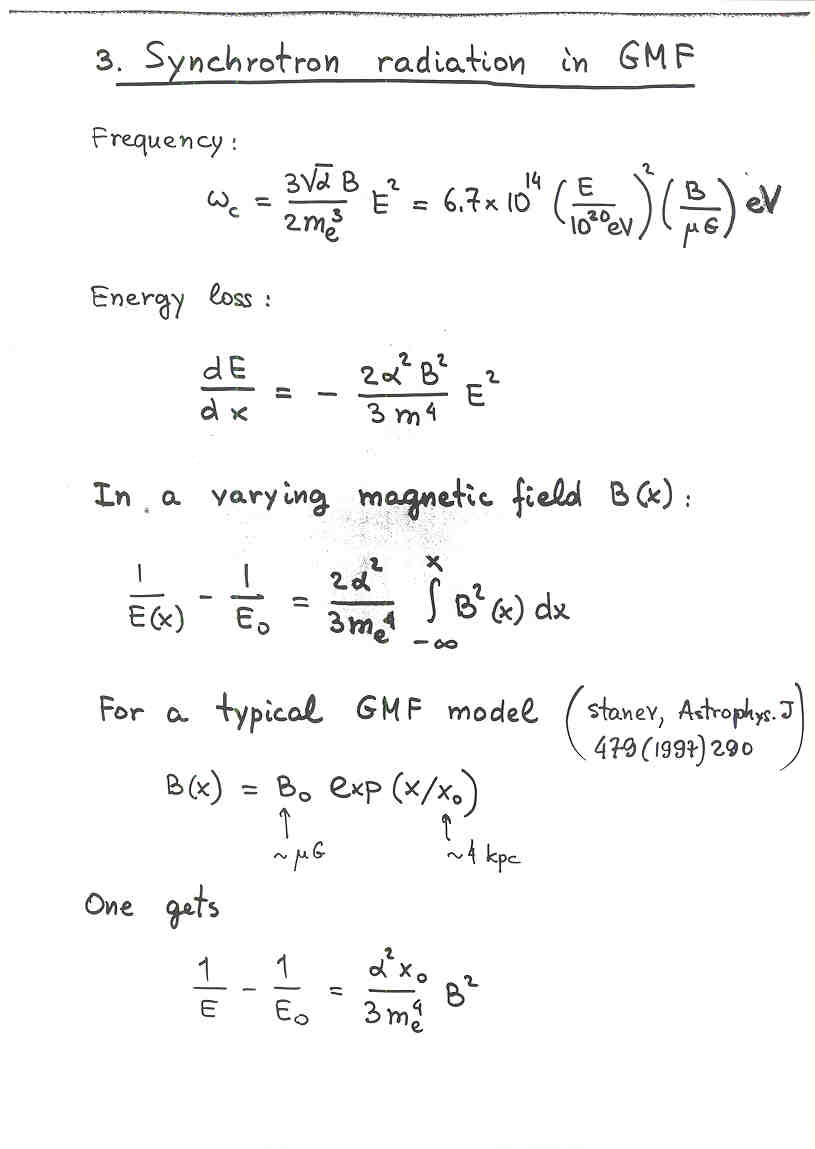 3. Synchrotron radiation in GMF
Frequency:
ω_c = 3√α B / 2m_e^3 E^2 = 6.7 × 10^14 (E / 10^20 eV)^2 (B / μG) eV
Energy loss:
dE / dx = - 2α^2 B^2 / 3 m^4 E^2
In a varying magnetic field B(x):
1 / E(x) - 1 / E_0 = 2α^2 / 3m_e^4 ∫_{-∞}^{x} B^2(x) dx
For a typical GMF model (Stanev, Astrophys. J
479 (1997) 290)
B(x) = B_0 exp (x/x_0)
↑ ↑
~ μG ~4 kpc
One gets
1 / E - 1 / E_0 = α^2 x_0 / 3 m_e^4 B^2